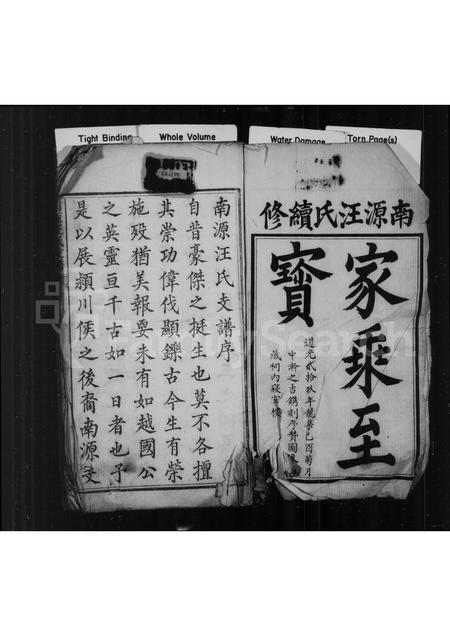 Tight Binding
Whole Volume
Water Damage
Torn Page(s)
南源汪氏續修
家乘至
寶
道光貳拾玖年歲榘己酉菊月
中澣之吉鐫刻序賛圖
藏祠內寢室
南源汪氏支譜序
自昔豪傑之挺生也莫不各擅
其崇功偉伐顯鑠古今生有榮
施歿猶美報要未有如越國公
之英靈亘千古如一日者也予
是以展潁川侯之後裔南源支
FamilySearch